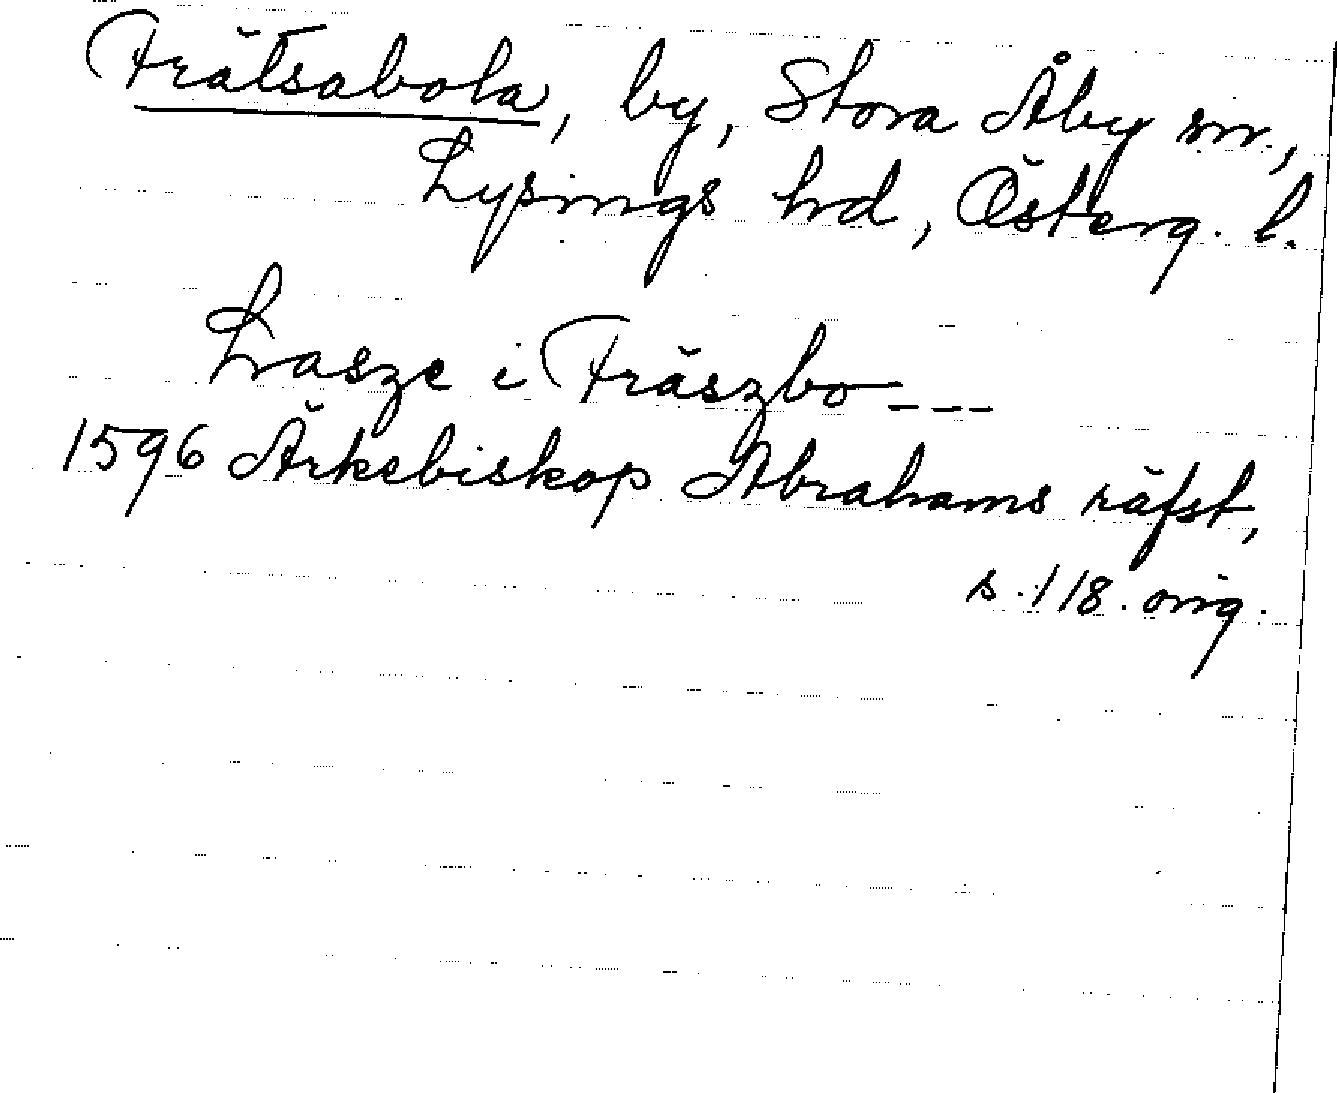 Frätsabola, by, Stora Åby sn.,
Lysings hd, Österg. l.
Lasze i Fräszbo ---
1596 Ärkebiskop Abrahams räfst,
s. 118. orig.